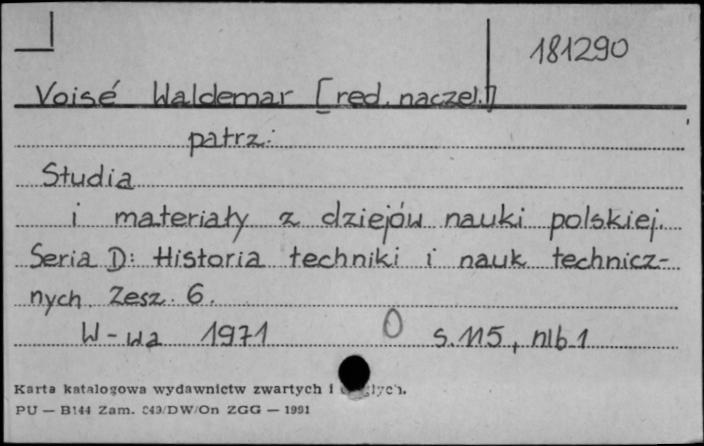 181290
Voisé Waldemar [red. naczel.]
patrz:
Studia
i materiały z dziejów nauki polskiej.
Seria D: Historia techniki i nauk technicz-
nych. Zesz. 6.
W-wa 1971 0 s. 115, nlb 1
Karta katalogowa wydawnictw zwartych i
PU — B144 Zam. 249/DW/On ZGG — 1991